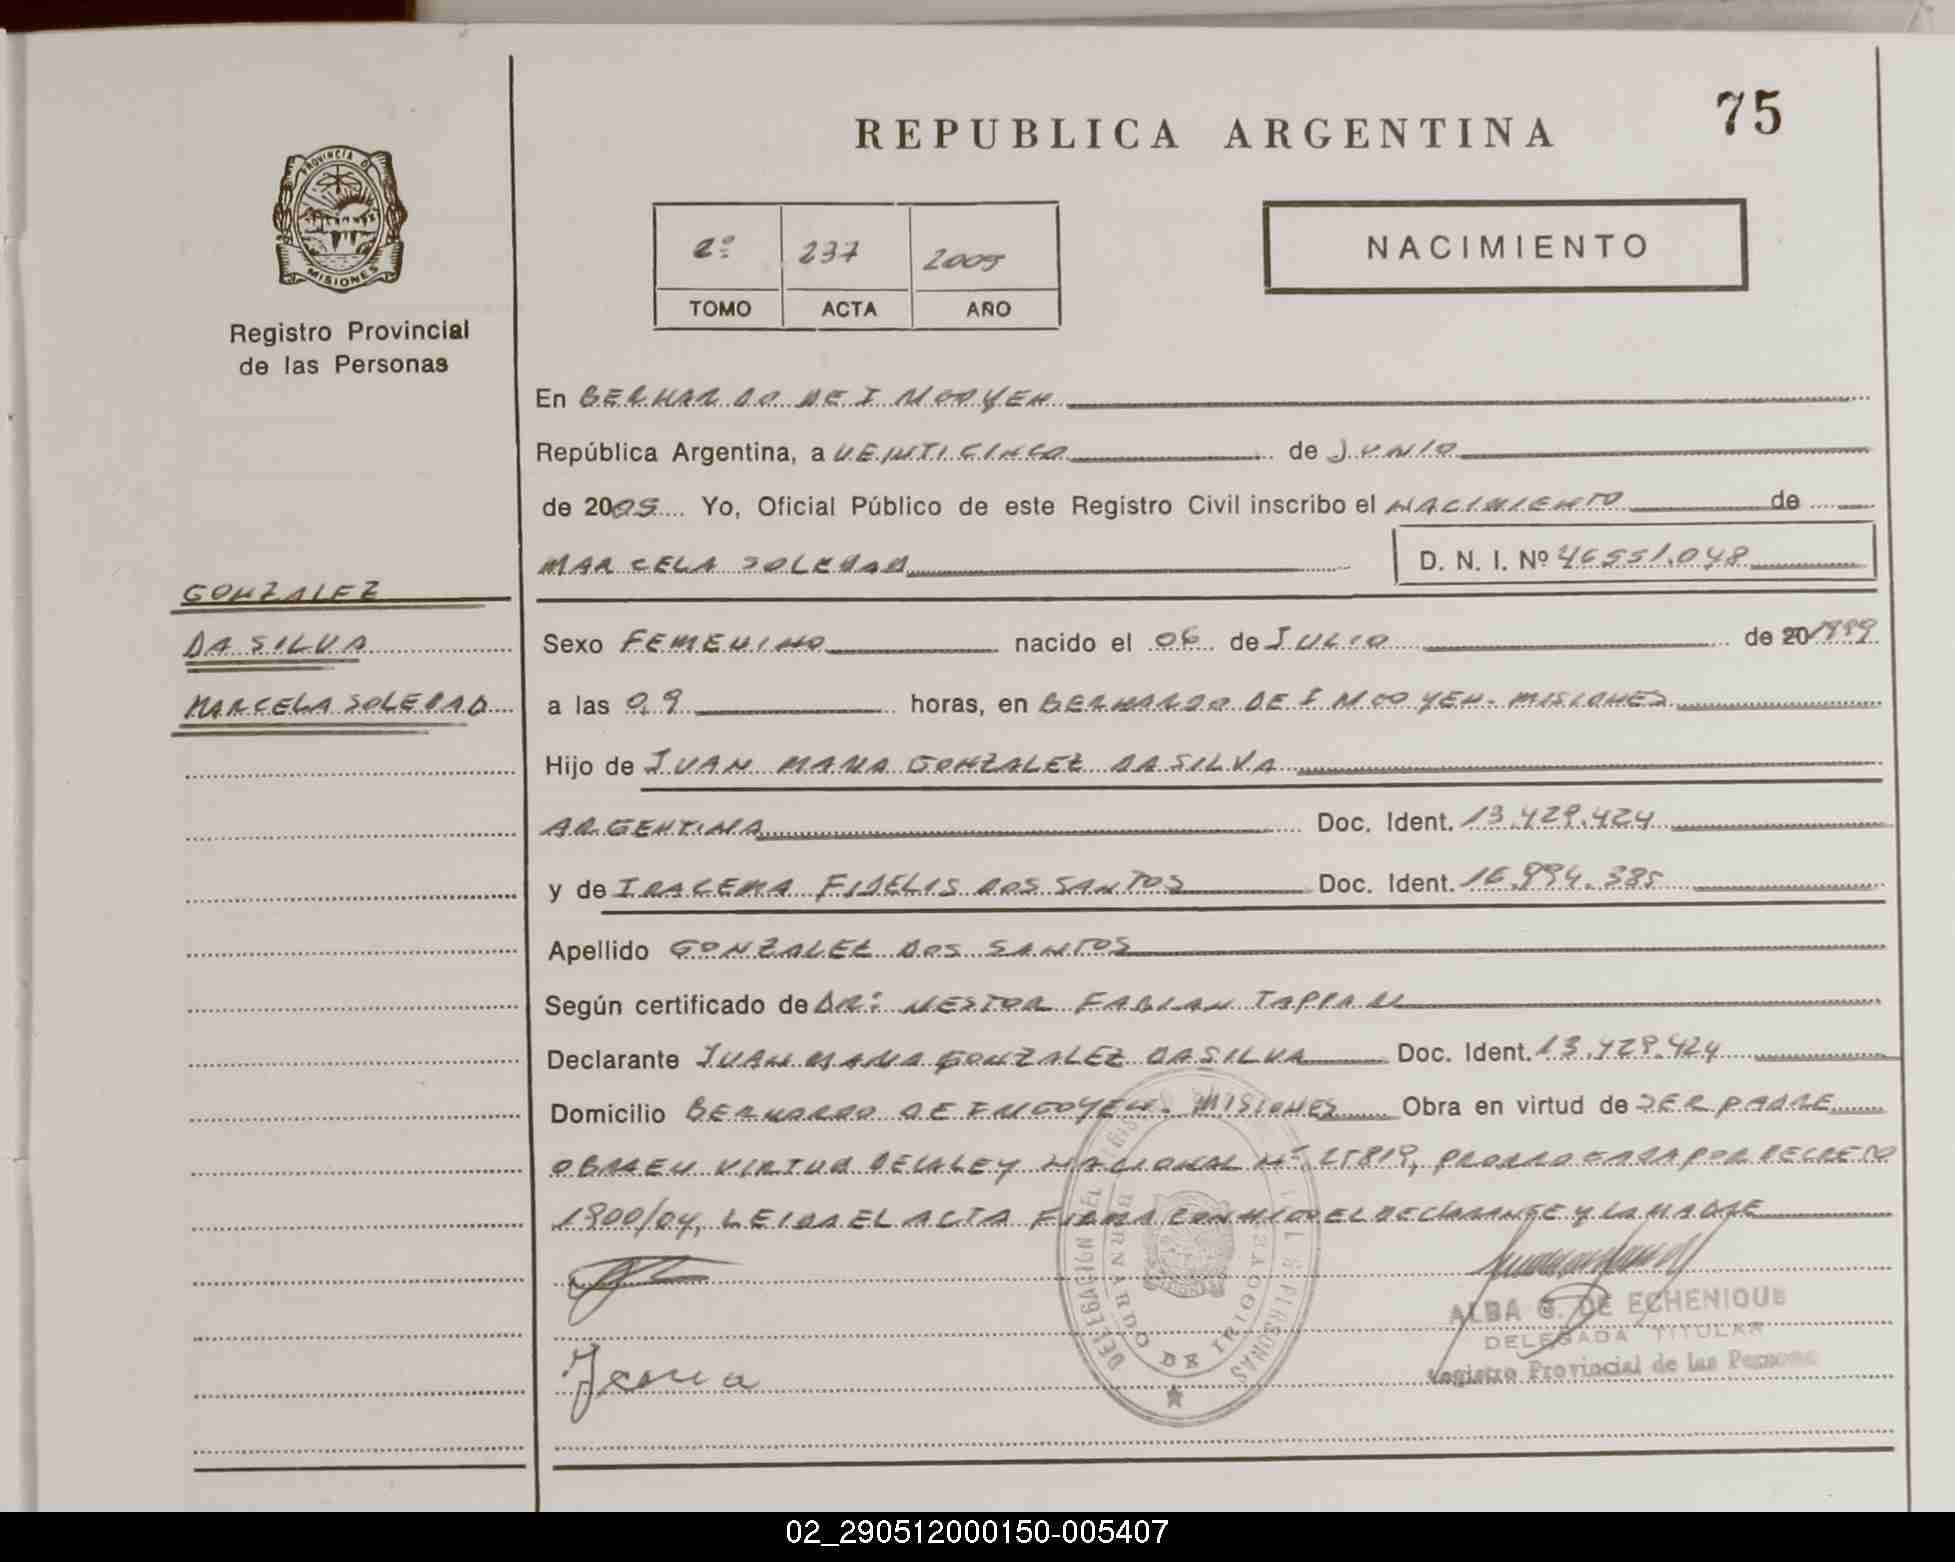 75
REPUBLICA ARGENTINA
PROVINCIA DE
MISIONES
2º 237 2005
TOMO ACTA AÑO
NACIMIENTO
Registro Provincial
de las Personas
En BERNARDO DE IRIGOYEN
República Argentina, a VEINTICINCO de JUNIO
de 2005 Yo, Oficial Público de este Registro Civil inscribo el NACIMIENTO de
MARCELA SOLEDAD D. N. I. Nº 46551.048
GONZALEZ
DA SILVA
MARCELA SOLEDAD
Sexo FEMENINO nacido el 06 de JULIO de 20 1999
a las 09 horas, en BERNARDO DE IRIGOYEN - MISIONES
Hijo de JUAN MARIA GONZALEZ DA SILVA
ARGENTINA Doc. Ident. 13.429.424
y de IRACEMA FIDELIS DOS SANTOS Doc. Ident. 16.994.385
Apellido GONZALEZ DOS SANTOS
Según certificado de DR: NESTOR FABIAN
Declarante JUAN MARIA GONZALEZ DA SILVA Doc. Ident. 13.429.424
Domicilio BERNARDO DE IRIGOYEN - MISIONES Obra en virtud de SER PADRE
OBRA EN VIRTUD DE LA LEY NACIONAL Nº 25819, PRORROGADA POR DECRETO
1900/04, LEIDA EL ACTA FIRMA CONMIGO EL DECLARANTE Y LA MADRE
ALBA G. DE ECHENIQUE
DELEGADA TITULAR
Registro Provincial de las Personas
DELEGACION DEL REGISTRO PERSONAS
BERNARDO DE IRIGOYEN
02_290512000150-005407